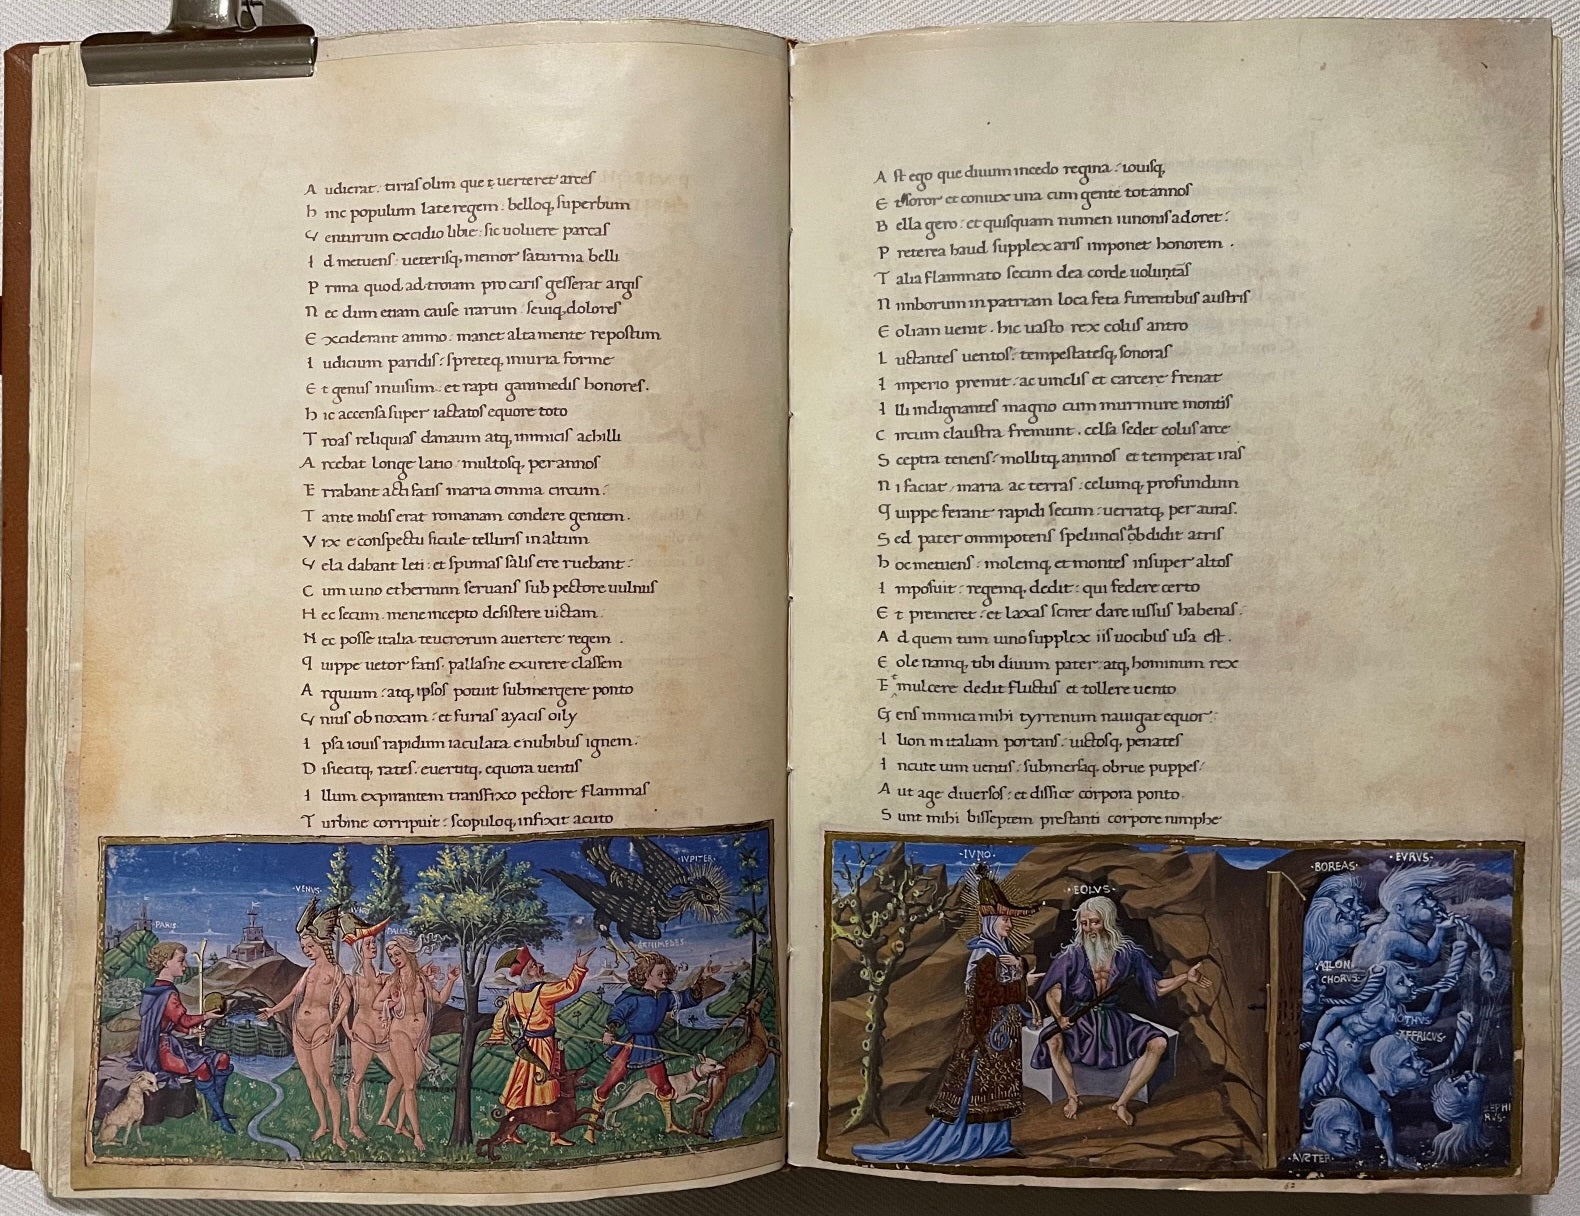 A udierat. tiriaſ olim que ꞇ uerteret arceſ
h inc populum late regem : belloq, ſuperbum
V enturum excidio libie : ſic uoluere parcaſ
I d metuenſ : ueteriſq, memor ſaturnia belli
P rima quod ad troiam pro cariſ geſſerat argiſ
N ec dum etiam cauſe irarum : ſeuiq, doloreſ
E xciderant animo : manet alta mente repoſtum
I udicium paridiſ : ſpreteq, iniuria forme
E t genuſ inuiſum : et rapti ganimediſ honoreſ.
h ic accenſa ſuper iactatoſ equore toto
T roaſ reliquiaſ danaum atq, inmitiſ achilli
A rcebat longe latio multoſq, per annoſ
E rrabant acti fatiſ maria omnia circum :
T ante moliſ erat romanam condere gentem.
V ix e conſpectu ſicule telluriſ in altum
V ela dabant leti : et ſpumaſ ſaliſ ere ruebant :
C um iuno ethernum ſeruanſ ſub pectore uulnuſ
H ec ſecum. mene incepto deſiſtere uictam.
N ec poſſe italia teucrorum auertere regem .
q uippe uetor fatiſ. pallaſne exurere claſſem
A rguium : atq, ipſoſ potuit ſubmergere ponto
V niuſ ob noxam : et furiaſ ayaciſ oily
I pſa iouiſ rapidum iaculata e nubibuſ ignem :
D iſiecitq, rateſ. euertitq, equora uentiſ
I llum expirantem tranſfixo pectore flammaſ
T urbine corripuit : ſcopuloq, infixit acuto
PARIS
·VENVS·
IVNO
PALLAS
·IVPITER·
GANIMEDES
A ſt ego que diuum incedo regina : iouiſq,
E t ſoror et coniux una cum gente tot annoſ
B ella gero : et quiſquam numen iunoniſ adoret :
P reterea haud ſupplex ariſ imponet honorem .
T alia flammato ſecum dea corde uoluntāſ
N imborum in patriam loca feta furentibuſ auſtriſ
E oliam uenit . hic uaſto rex eoluſ antro
L uctanteſ uentoſ : tempeſtateſq, ſonoraſ
I mperio premit : ac uincliſ et carcere frenat
I lli indignanteſ magno cum murmure montiſ
C ircum clauſtra fremunt . celſa ſedet eoluſ arce
S ceptra tenenſ : mollitq, animoſ et temperat iraſ
N i faciat / maria ac terraſ : celumq, profundum
q uippe ferant rapidi ſecum : uerratq, per auraſ.
S ed pater omnipotenſ ſpeluncaſ obdidit atriſ
h oc metuenſ : molemq, et monteſ inſuper altoſ
I mpoſuit : regemq, dedit : qui federe certo
E t premeret : et laxaſ ſciret dare iuſſuſ habenaſ .
A d quem tum iuno ſupplex iiſ uocibuſ uſa eſt .
E ole namq, tibi diuum pater atq, hominum rex
E t mulcere dedit fluctuſ et tollere uento
G enſ inimica mihi tyrrenum nauigat equor :
I lion in italiam portanſ : uictoſq, penateſ
I ncute uim uentiſ : ſubmerſaq, obrue puppeſ /
A ut age diuerſoſ : et diſſice corpora ponto.
S unt mihi biſſeptem preſtanti corpore nimphe
·IVNO·
·EOLVS·
·BOREAS·
·EVRVS·
CHORVS·
NOTHVS
AFFRICVS·
ZEPHI
RVS·
·AVSTER·